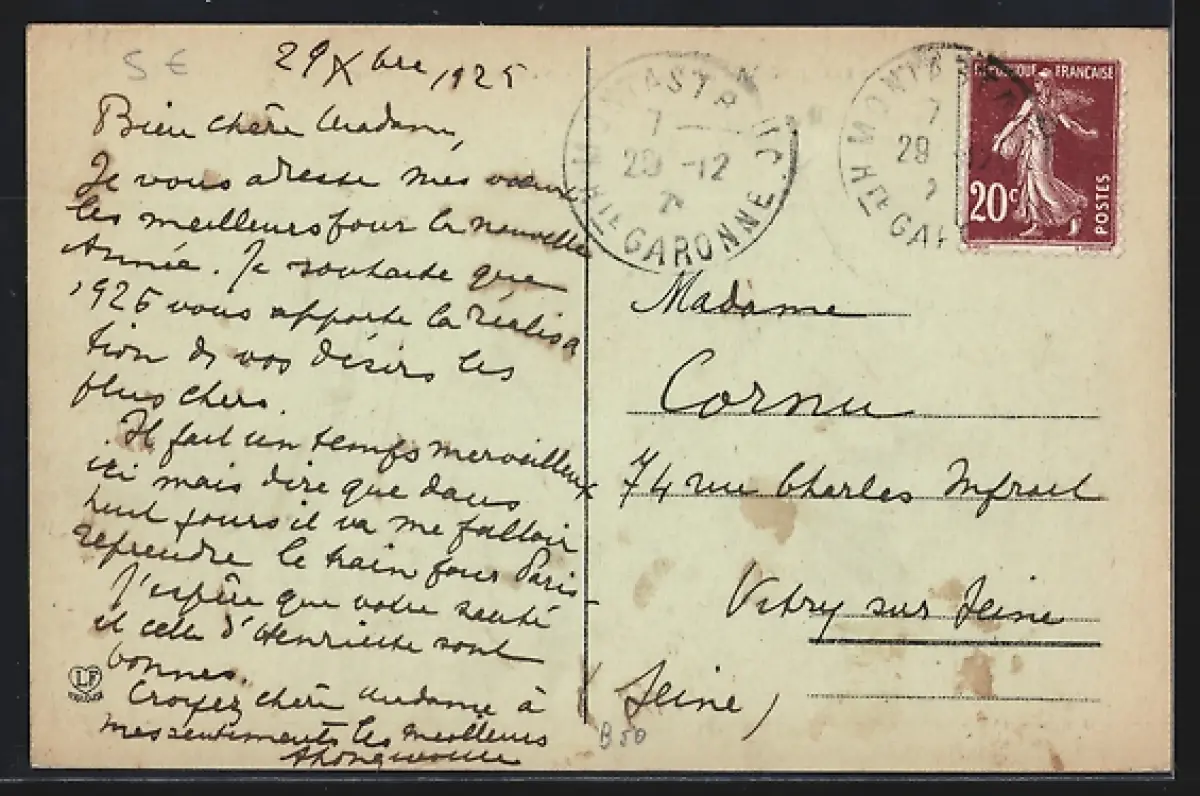 5 €
29 Xbre 1925
Bien chère Madame,
Je vous adresse mes vœux
les meilleurs pour la nouvelle
Année. Je souhaite que
1926 vous apporte la réalisa
tion de vos désirs les
plus chers.
Il fait un temps merveilleux
ici mais dire que dans
huit jours il va me falloir
reprendre le train pour Paris-
J'espère que votre santé
et celle d'Henriette sont
bonnes.
Croyez chère Madame à
mes sentiments les meilleurs
LF
7
29 -12
Hte GARONNE
7
29
Hte GAR
RÉPUBLIQUE FRANÇAISE
20c
POSTES
Madame
Cornu
74 rue Charles Infroit
Vitry sur Seine
(Seine)
B50